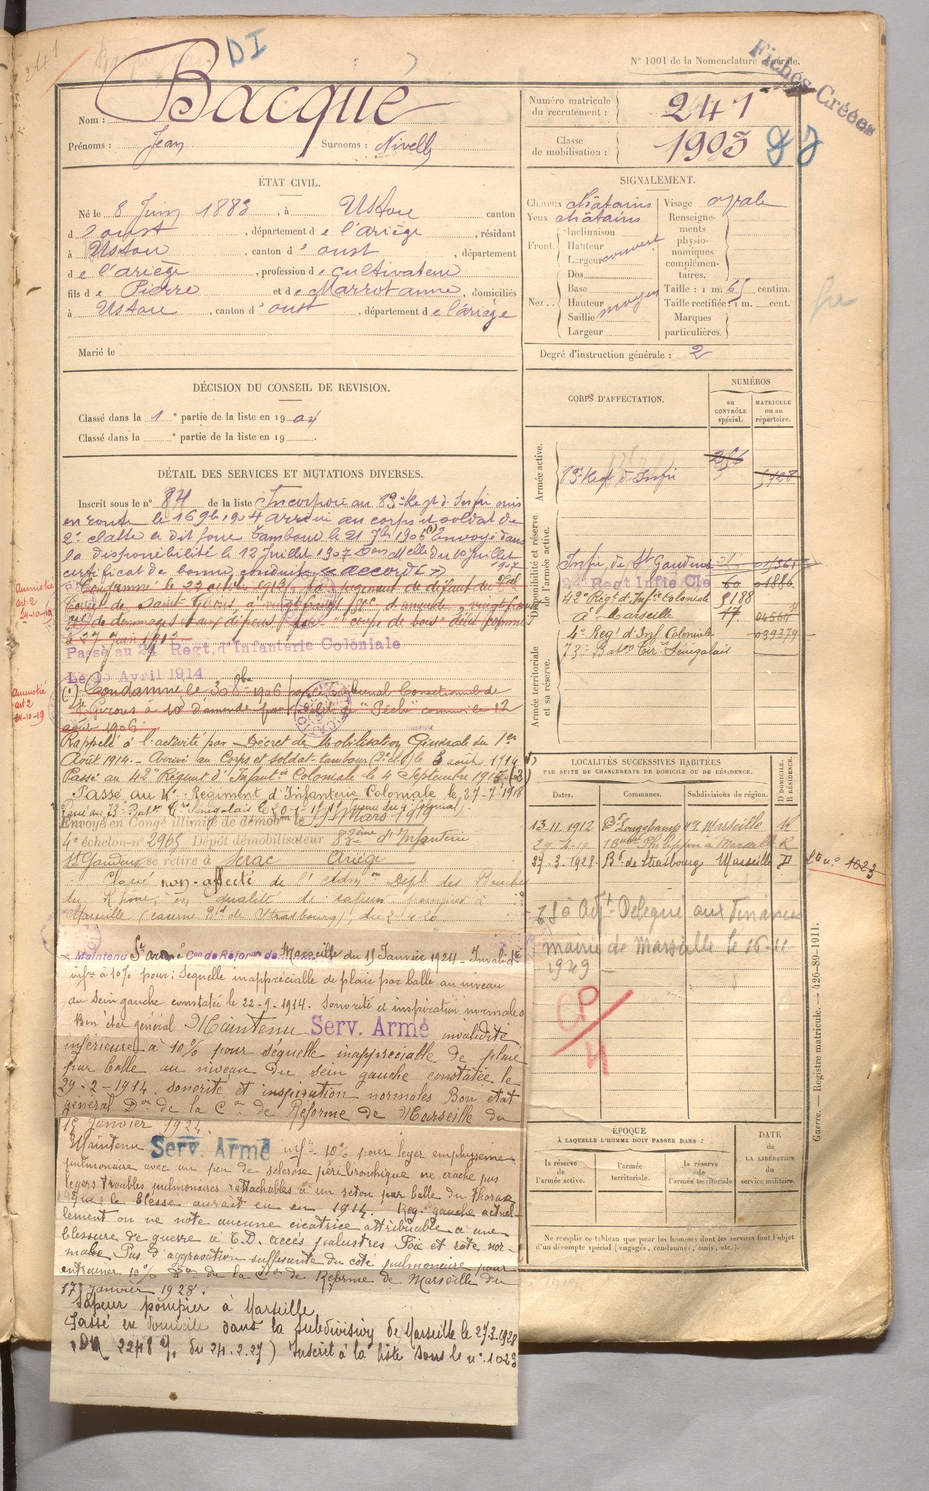 241
DI
N° 1001 de la Nomenclature Générale.
Fiches Créées
Nom : Bacqué
Prénoms : Jean Surnoms : Nivelly
Numéro matricule du recrutement : 241
Classe de mobilisation : 1903
ÉTAT CIVIL.
Né le 8 Juin 1883, à Ustou canton
d'oust, département de l'ariège, résidant
à Ustou, canton d'oust, département
de l'ariège, profession de cultivateur
fils de Pierre et de Marrot anne, domiciliés
à Ustou, canton d'oust, département de l'ariège
Marié le
SIGNALEMENT.
Cheveux châtains Visage ovale
Yeux châtains
Front. Inclinaison Hauteur Largeur couvert
Nez. Dos Base Hauteur Saillie Largeur moyen
Renseignements physionomiques complémentaires.
Taille : 1 m. 65 centim.
Taille rectifiée : 1 m. cent.
Marques particulières.
Degré d'instruction générale : 2
DÉCISION DU CONSEIL DE REVISION.
Classé dans la 1e partie de la liste en 1904
Classé dans la e partie de la liste en 19 .
CORPS D'AFFECTATION.
NUMÉROS
au CONTRÔLE spécial.
MATRICULE ou au répertoire.
Armée active.
83e Regt d'Infie 5728
Disponibilité et réserve de l'armée active.
Infie de St Gaudens 01361
24e Regt Infie Cle 60 01886
42e Régt d'Infie Coloniale 9188
à Marseille 77
4e Regt d'Inf Coloniale 039379
73e Baton Tir. Sénégalais
Armée territoriale et sa réserve.
DÉTAIL DES SERVICES ET MUTATIONS DIVERSES.
Inscrit sous le n° 84 de la liste Incorporé au 83e Regt d'Infie mis
en route le 16 9bre 1904 arrivé au corps et soldat de
2e classe le dit jour Tambour le 21 7bre 1906 (1) Envoyé dans
la disponibilité le 12 Juillet 1907 Don Melle du 10 juillet 1907
certificat de bonne conduite « accordé »
Condamné le 22 octobre 1912 par jugement de défaut du
de Saint Girons, à vingt francs d'amende, vingt francs
de dommages et aux dépens pour
le 27 Juin 1912
Amnistié art 2 24-10-19
Passé au 24 Regt d'Infanterie Coloniale
Le 15 Avril 1914
(1) Condamné le 1906 par le tribunal Correctionnel de
St Girons à 10f d'amende pour délit de "Pêche" commis le 12
août 1906
Amnistié art 2 24-10-19
Rappelé à l'activité par Décret de Mobilisation Générale du 1er
Août 1914. Arrivé au Corps et soldat-tambour le 3 août 1914
Passé au 42e Régiment d'Infantie Coloniale le 4 Septembre 1915
Passé au 4e Regiment d'Infanterie Coloniale le 27-7-1918
Envoyé en Congé illimité de démobon le 19 Mars 1919
4e échelon n° 2965 Dépôt démobilisateur 83ème d'Infanterie
St Gaudens se retire à Serac Ariège
Classé non-affecté de l'Admon Dept des Bouches
du Rhône, en qualité de sapeur pompier à
Marseille (caserne Bd de Strasbourg), du 2-4-20
Maintenu St armé Con de Réforme de Marseille du 15 Janvier 1924. Invalidité
infre à 10% pour : Sequelle inappréciable de plaie par balle au niveau
du sein gauche constatée le 22-9-1914. Sonorité et inspiration normales
Bon état général Maintenu Serv. Armé invalidité
inférieure à 10% pour séquelle inappréciable de plaie
par balle au niveau du sein gauche constatée le
29-2-1914. sonorité et inspiration normales Bon état
général Don de la Con de Réforme de Marseille du
15 Janvier 1924.
Maintenu Serv. Armé infre 10% pour leger emphysème
pulmonaire avec un peu de sclérose péri bronchique ne crache pas
legers troubles pulmonaires rattachables à un seton par balle du thorax
dont le blessé aurait eu en 1914. Reg. gauche actuellement
on ne note aucune cicatrice attribuable à une
blessure de guerre à E.D. accès palustres Foie et rate normale
Pas d'aggravation suffisante du côté pulmonaire pour
entrainer 10% Don de la Con de Réforme de Marseille du
17 Janvier 1928.
Sapeur pompier à Marseille
Passé en domicile dans la subdivision de Marseille le 27.3.1928
(DM 2248 7/ du 24.2.27) Inscrit à la liste sous le n° 1023
LOCALITÉS SUCCESSIVES HABITÉES
PAR SUITE DE CHANGEMENTS DE DOMICILE OU DE RÉSIDENCE.
Dates. Communes. Subdivisions de région. D DOMICILE. R RÉSIDENCE.
13-11-1912 Bd Longchamp Marseille R
29-4-19 1 Boulevd Philippon à Marseille R
27-3-1928 Bd de Strasbourg Marseille D
L u n° 1023
Adjt Délégué aux Finances
mairie de Marseille le 16-11-
1929
CP/4
ÉPOQUE
À LAQUELLE L'HOMME DOIT PASSER DANS :
la réserve de l'armée active.
l'armée territoriale.
la réserve de l'armée territoriale
DATE de LA LIBÉRATION du service militaire.
Ne remplir ce tableau que pour les hommes dont les services font l'objet
d'un décompte spécial (engagés, condamnés, omis, etc.).
Guerre. — Registre matricule. — 426-89-1911.